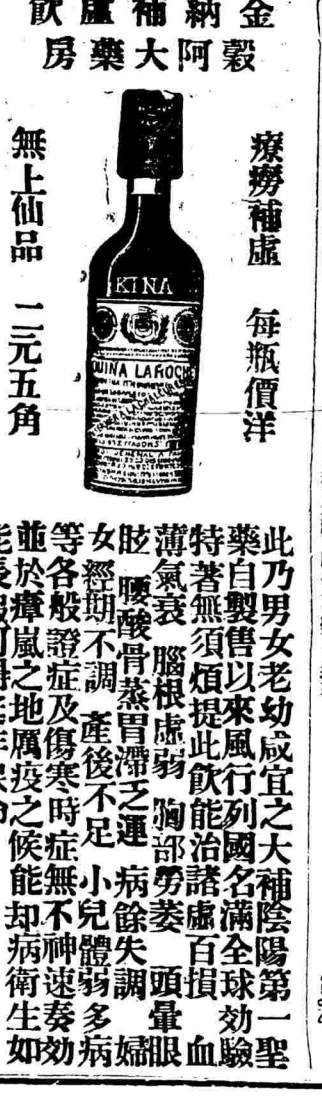 金納補虛飲
穀阿大藥房
療癆補虛 每瓶價洋
無上仙品 二元五角
KINA
QUINA LAROCHE
此乃男女老幼咸宜之大補陰陽第一聖
藥自製售以來風行列國名滿全球効驗
特著無須煩提此飲能治諸虛百損 血
薄氣衰 腦根虛弱 胸部勞萎 頭暈眼
眩 腰酸骨蒸胃滯乏運 病餘失調 婦
女經期不調 產後不足 小兒體弱多病
等各般證症及傷寒時症無不神速奏効
並於瘴嵐之地厲疫之候能却病衛生如
能長服可